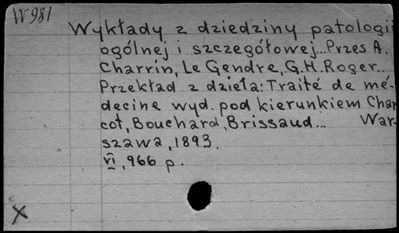 W981
Wykłady z dziedziny patologii
ogólnej i szczegółowej...Przes A.
Charrin, Le Gendre, G.H. Roger...
Przekład z dzieła: Traité de mé-
decine wyd. pod kierunkiem Char
cot, Bouchard, Brissaud... War-
szawa, 1893.
VI, 966 p.
X